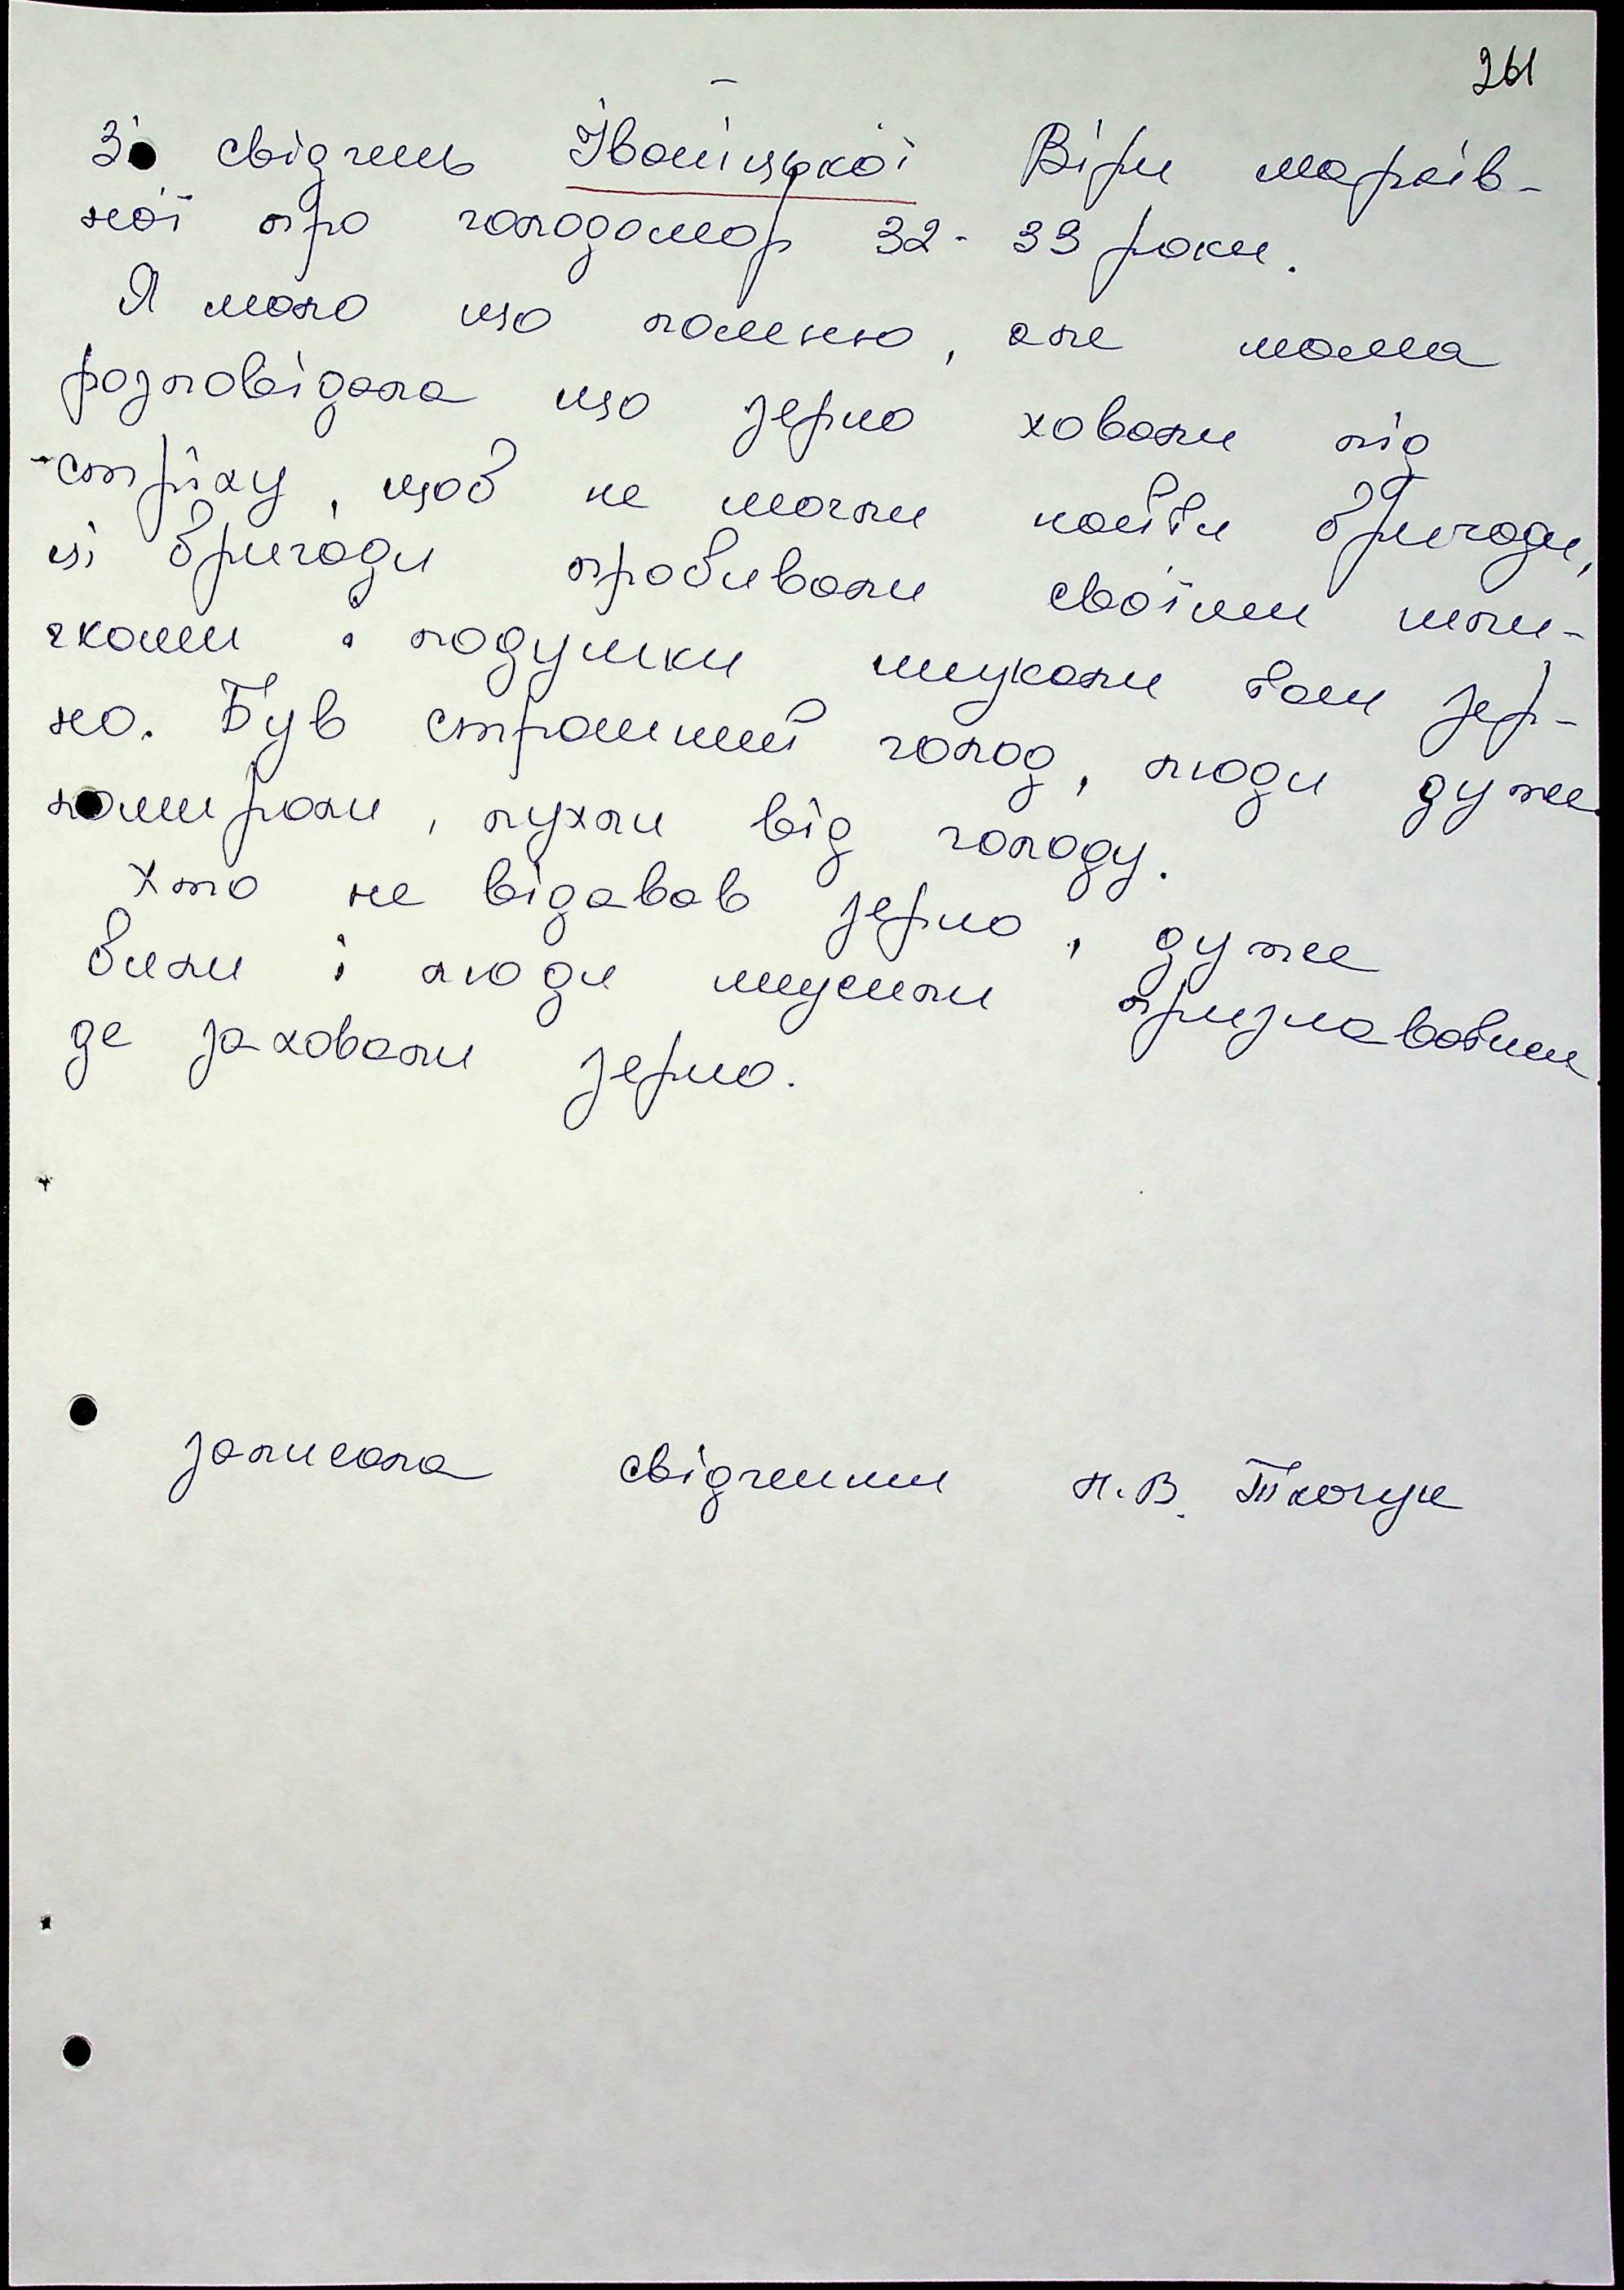 261
Зі свідчень Іваніцької Віри Марків-
ної про голодомор 32-33 роки.
Я мало що помню, але мама
розповідала що зерно ховали під
стріху, щоб не могли найти бригади,
ці бригади пробивали своїми шпи-
чками і подушки шукали там зер-
но. Був страшний голод, люди дуже
помирали, пухли від голоду.
Хто не відавав зерно, дуже
били і люди мусили признаватися
де заховали зерно.
записала свідчення Н.В. Ткачук